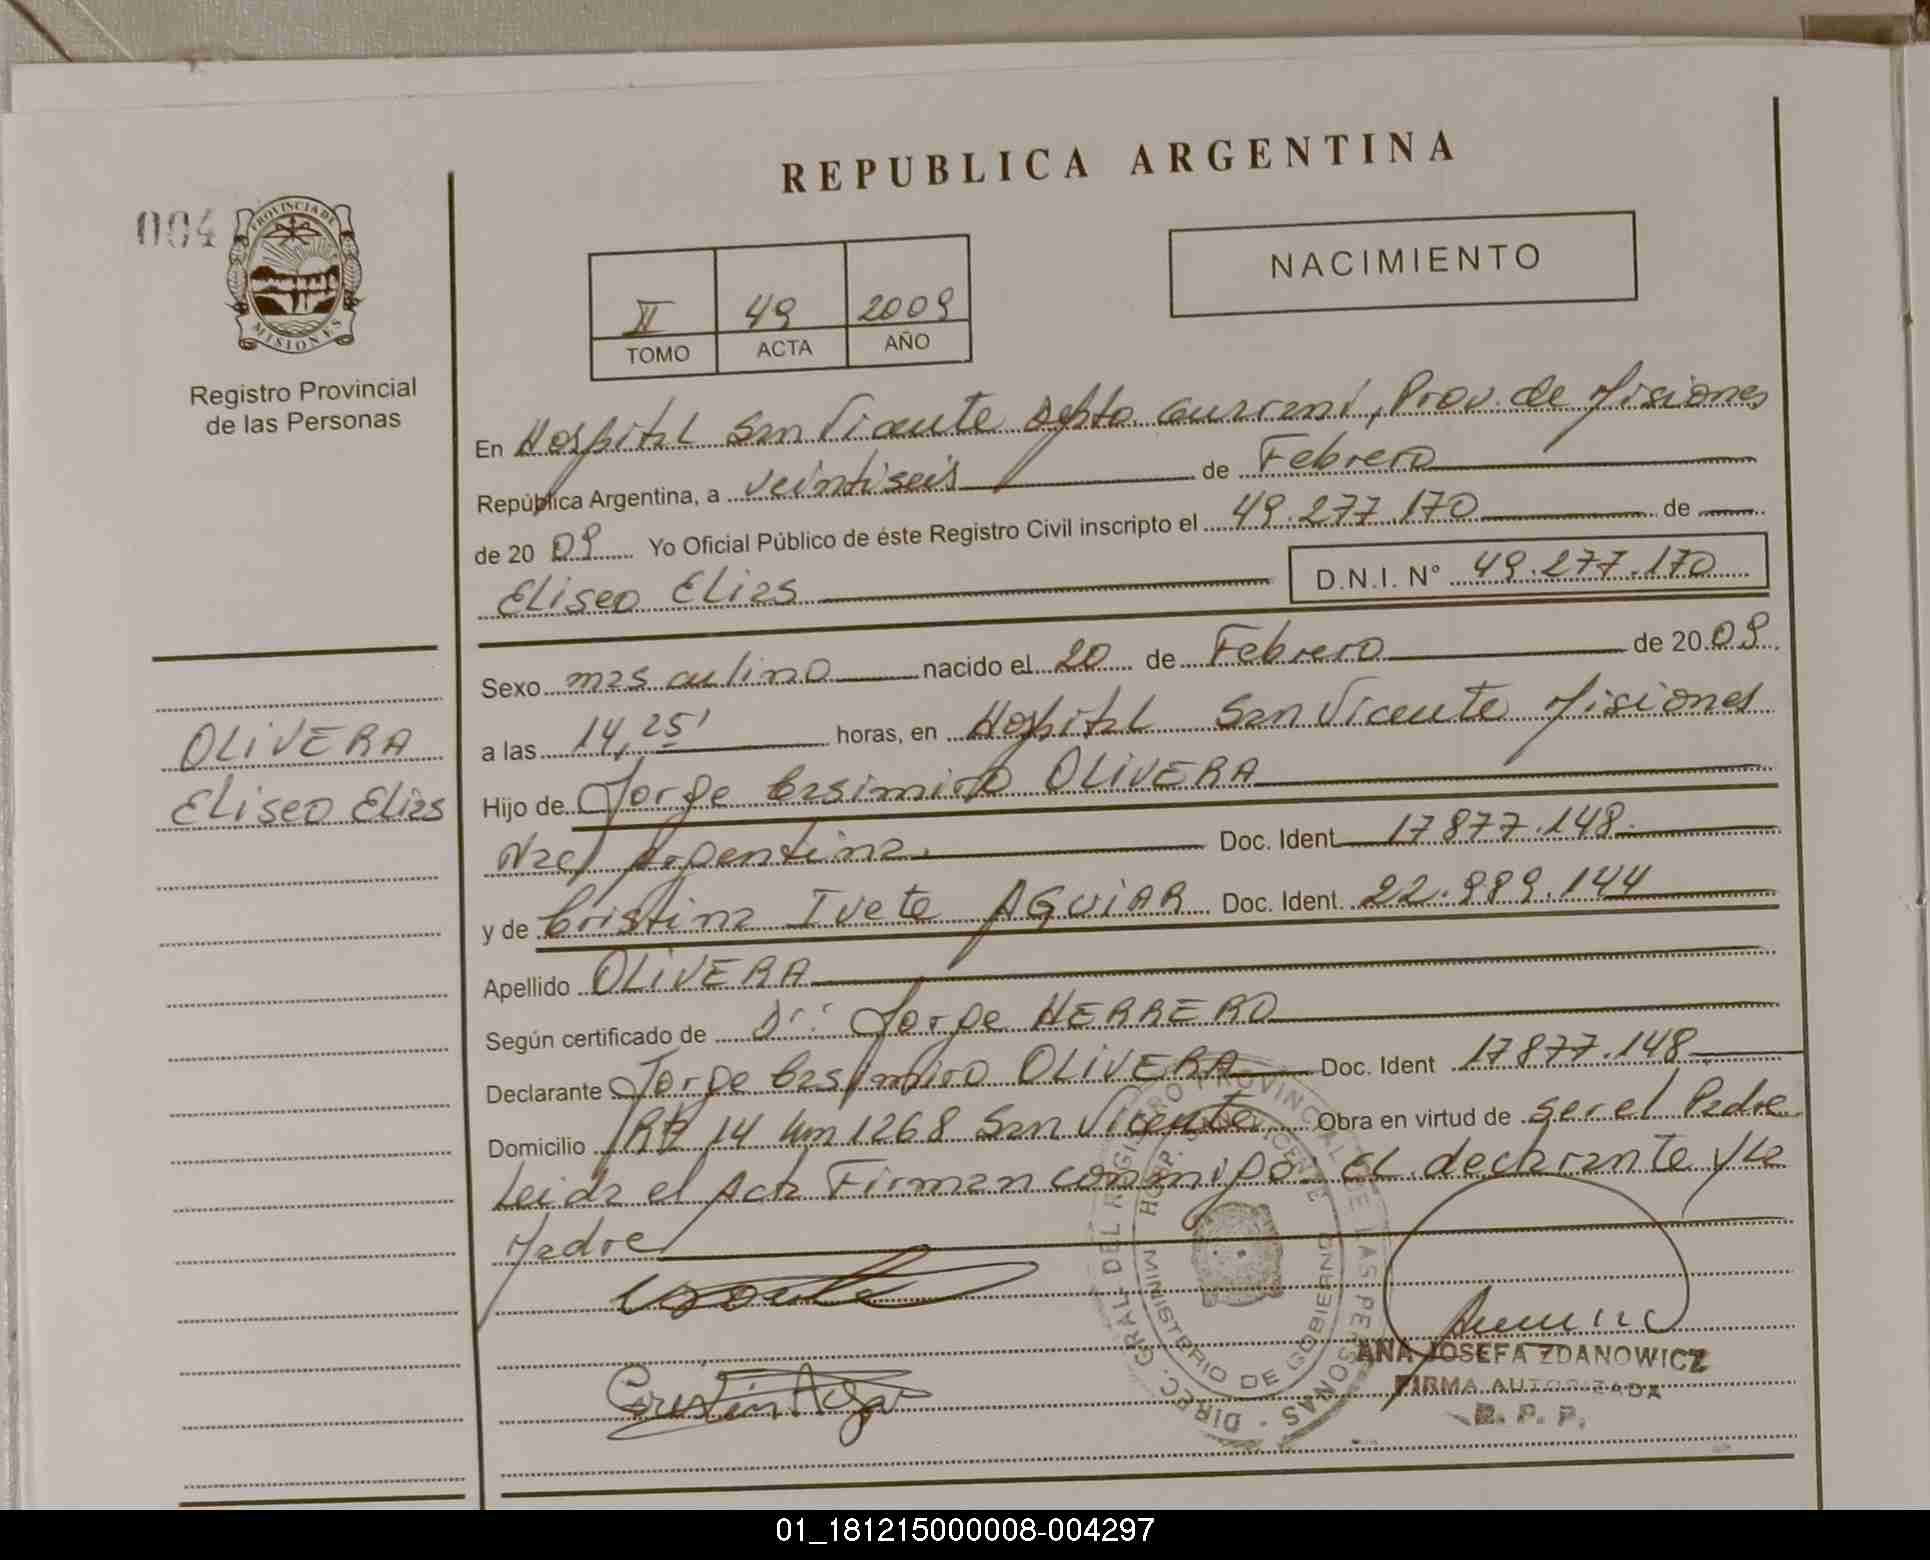 REPUBLICA ARGENTINA
004
PROVINCIA DE
MISIONES
Registro Provincial
de las Personas
NACIMIENTO
II 49 2009
TOMO ACTA AÑO
En Hospital San Vicente Depto. Guaraní, Prov. de Misiones
República Argentina, a veintiseis de Febrero
de 20 09 Yo Oficial Público de éste Registro Civil inscripto el 49.277.170 de
Eliseo Elias D.N.I. N° 49.277.170
Sexo masculino nacido el 20 de Febrero de 20 09
a las 14,25' horas, en Hospital San Vicente Misiones
OLIVERA
Eliseo Elias
Hijo de Jorge Casimiro OLIVERA
Nac. Argentina. Doc. Ident 17877.148
y de Cristina Ivete AGUIAR Doc. Ident. 22.989.144
Apellido OLIVERA
Según certificado de Dr: Jorge HERRERO
Declarante Jorge Casimiro OLIVERA Doc. Ident 17877.148
Domicilio 14 km 1268 San Vicente Obra en virtud de ser el Padre
Leida el Acta Firman conmigo El declarante y la
Madre
DIREC. GRAL. DEL REGISTRO PROVINCIAL DE LAS PERSONAS
HOSP. SAN VICENTE
MINISTERIO DE GOBIERNO
ANA JOSEFA ZDANOWICZ
FIRMA AUTORIZADA
R. P. P.
01_181215000008-004297